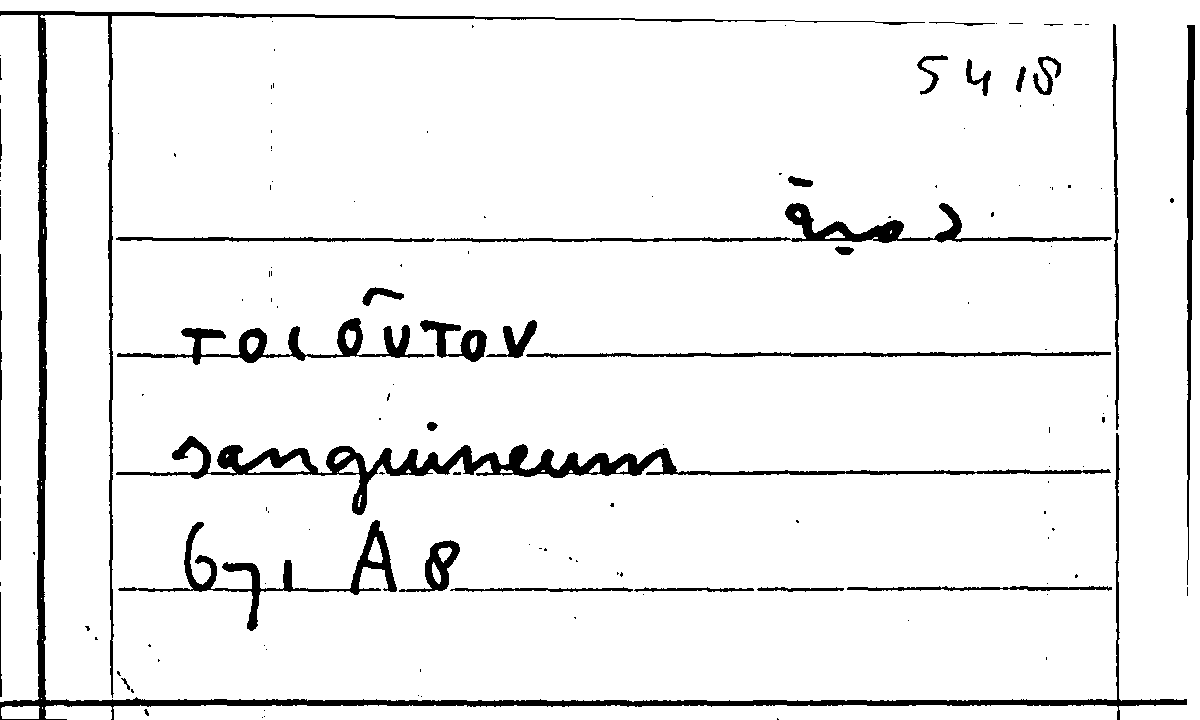 5418
دمية
τοιοῦτον
sanguineum
671 A 8